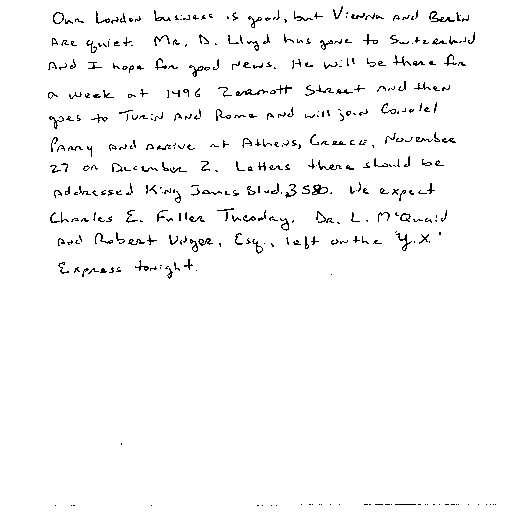 Our London business is good, but Vienna and Berlin
are quiet. Mr. D. Lloyd has gone to Switzerland
and I hope for good news. He will be there for
a week at 1496 Zermott Street and then
goes to Turin and Rome and will join Colonel
Parry and arrive at Athens, Greece, November
27 or December 2. Letters there should be
addressed King James Blvd. 3580. We expect
Charles E. Fuller Tuesday. Dr. L. McQuaid
and Robert Unger, Esq., left on the "Y.X."
Express tonight.